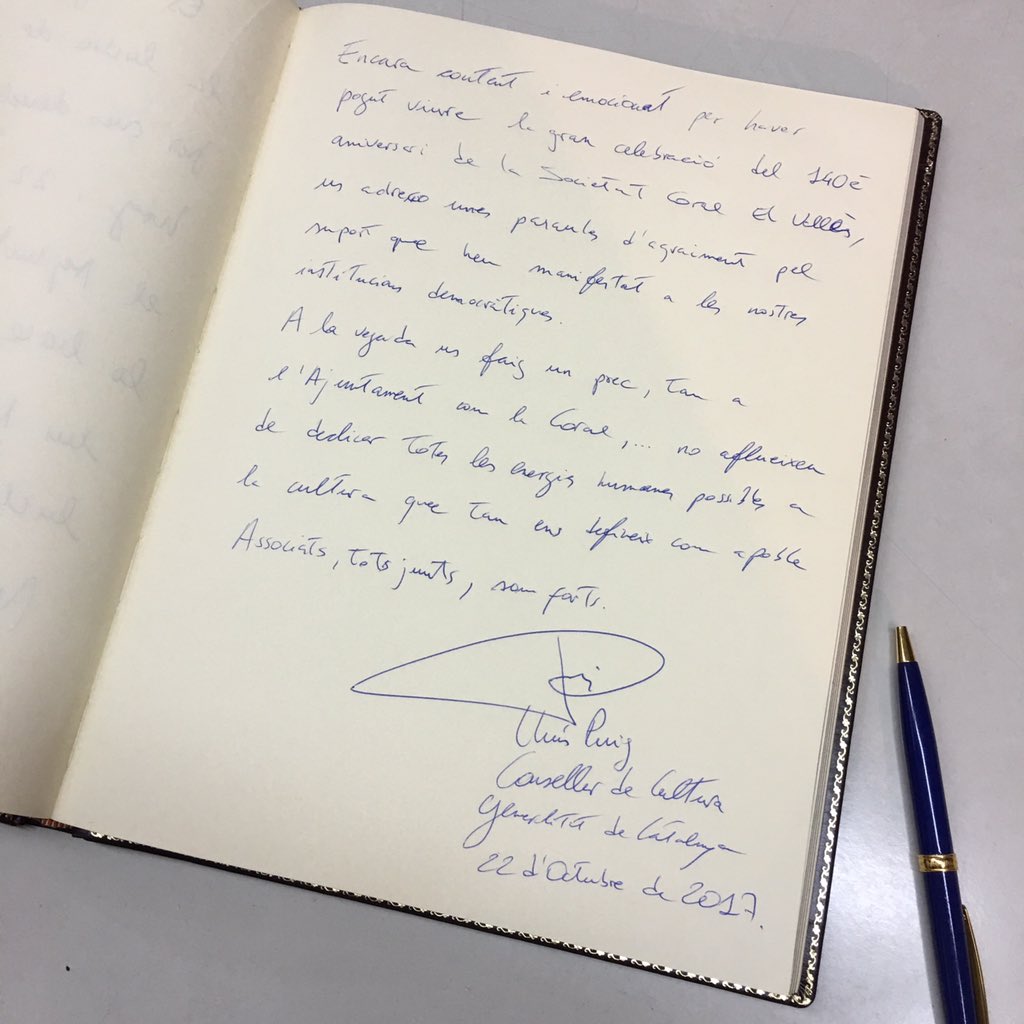 Encara content i emocionat per haver
pogut viure la gran celebració del 140è
aniversari de la Societat Coral El Vallès,
us adreço unes paraules d'agraiment pel
suport que heu manifestat a les nostres
institucions democràtiques.
A la vegada us faig un prec, tan a
l'Ajuntament com la Coral,... no afluixeu
de dedicar totes les energies humanes possibles a
la cultura que tan ens defineix com a poble
Associats, tots junts, som forts.
Lluís Puig
Conseller de Cultura
Generalitat de Catalunya
22 d'Octubre de 2017.